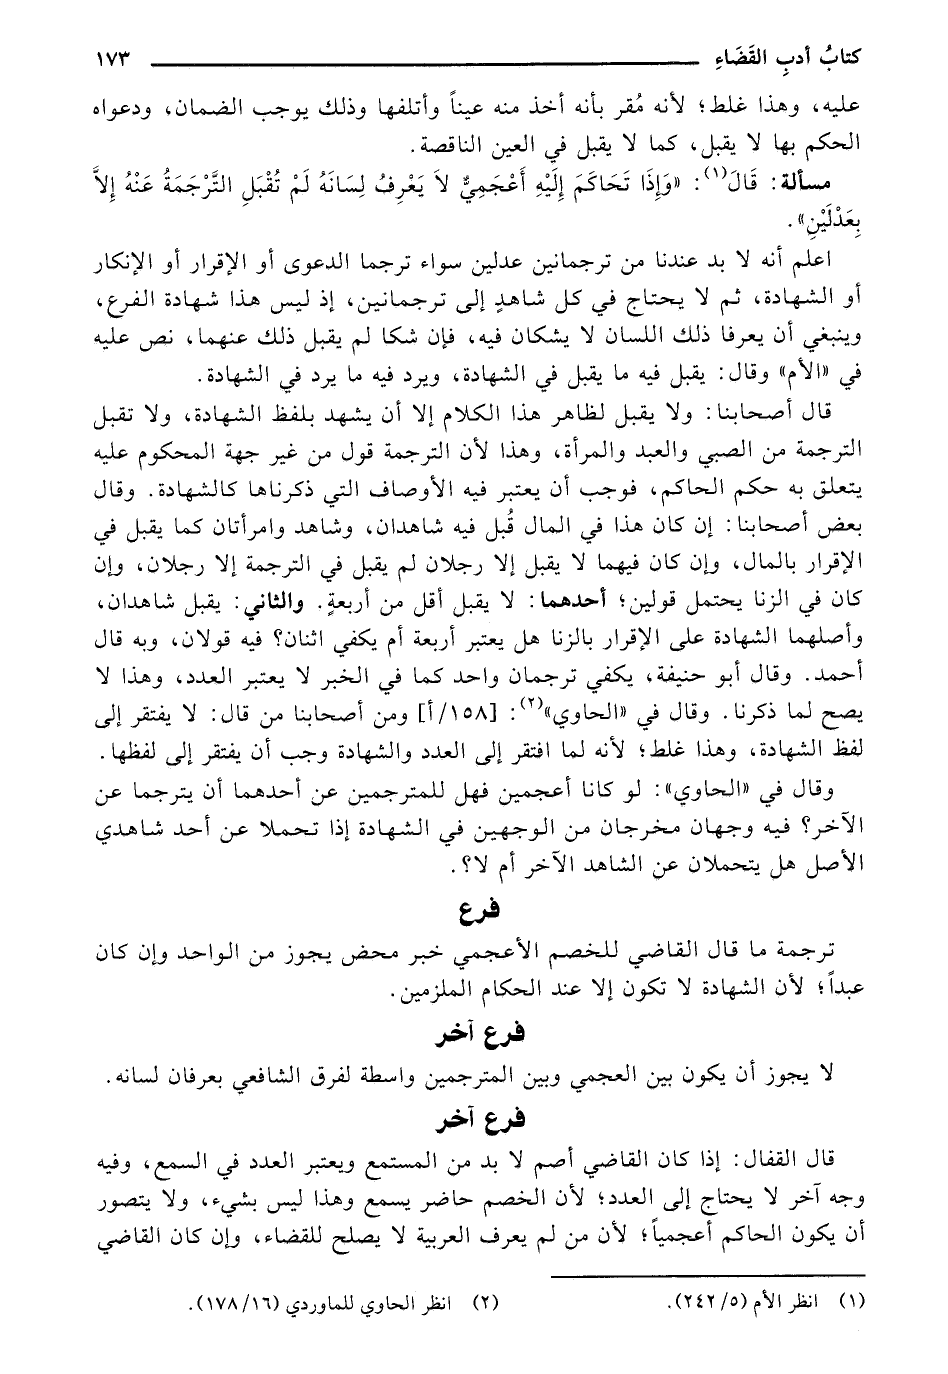 كتابُ أدبِ القَضَاءِ ١٧٣
عليه، وهذا غلط؛ لأنه مُقر بأنه أخذ منه عيناً وأتلفها وذلك يوجب الضمان، ودعواه
الحكم بها لا يقبل، كما لا يقبل في العين الناقصة.
مسألة: قَالَ(١): «وَإِذَا تَحَاكَمَ إِلَيْهِ أَعْجَمِيٌّ لاَ يَعْرِفُ لِسَانَهُ لَمْ تُقْبَلِ التَّرْجَمَةُ عَنْهُ إِلاَّ
بِعَدْلَيْنِ».
اعلم أنه لا بد عندنا من ترجمانين عدلين سواء ترجما الدعوى أو الإقرار أو الإنكار
أو الشهادة، ثم لا يحتاج في كل شاهدٍ إلى ترجمانين، إذ ليس هذا شهادة الفرع،
وينبغي أن يعرفا ذلك اللسان لا يشكان فيه، فإن شكا لم يقبل ذلك عنهما، نص عليه
في «الأم» وقال: يقبل فيه ما يقبل في الشهادة، ويرد فيه ما يرد في الشهادة.
قال أصحابنا: ولا يقبل لظاهر هذا الكلام إلا أن يشهد بلفظ الشهادة، ولا تقبل
الترجمة من الصبي والعبد والمرأة، وهذا لأن الترجمة قول من غير جهة المحكوم عليه
يتعلق به حكم الحاكم، فوجب أن يعتبر فيه الأوصاف التي ذكرناها كالشهادة. وقال
بعض أصحابنا: إن كان هذا في المال قُبل فيه شاهدان، وشاهد وامرأتان كما يقبل في
الإقرار بالمال، وإن كان فيهما لا يقبل إلا رجلان لم يقبل في الترجمة إلا رجلان، وإن
كان في الزنا يحتمل قولين؛ أحدهما: لا يقبل أقل من أربعةٍ. والثاني: يقبل شاهدان،
وأصلهما الشهادة على الإقرار بالزنا هل يعتبر أربعة أم يكفي اثنان؟ فيه قولان، وبه قال
أحمد. وقال أبو حنيفة، يكفي ترجمان واحد كما في الخبر لا يعتبر العدد، وهذا لا
يصح لما ذكرنا. وقال في «الحاوي»(٢): [١٥٨/أ] ومن أصحابنا من قال: لا يفتقر إلى
لفظ الشهادة، وهذا غلط؛ لأنه لما افتقر إلى العدد والشهادة وجب أن يفتقر إلى لفظها.
وقال في «الحاوي»: لو كانا أعجمين فهل للمترجمين عن أحدهما أن يترجما عن
الآخر؟ فيه وجهان مخرجان من الوجهين في الشهادة إذا تحملا عن أحد شاهدي
الأصل هل يتحملان عن الشاهد الآخر أم لا؟.
فرع
ترجمة ما قال القاضي للخصم الأعجمي خبر محض يجوز من الواحد وإن كان
عبداً؛ لأن الشهادة لا تكون إلا عند الحكام الملزمين.
فرع آخر
لا يجوز أن يكون بين العجمي وبين المترجمين واسطة لفرق الشافعي بعرفان لسانه.
فرع آخر
قال القفال: إذا كان القاضي أصم لا بد من المستمع ويعتبر العدد في السمع، وفيه
وجه آخر لا يحتاج إلى العدد؛ لأن الخصم حاضر يسمع وهذا ليس بشيء، ولا يتصور
أن يكون الحاكم أعجمياً؛ لأن من لم يعرف العربية لا يصلح للقضاء، وإن كان القاضي
(١) انظر الأم (٥/٢٤٢). (٢) انظر الحاوي للماوردي (١٦/١٧٨).